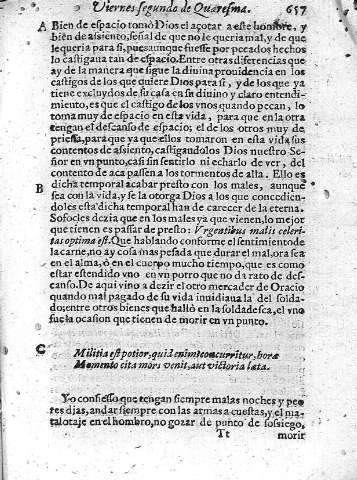 Viernes segundo de Quaresma. 657
A Bien de espacio tomò Dios el açotar a este hombre, y
bien de assiento, señal de que no le queria mal, y de que
le queria para si, pues aunque fuesse por pecados hechos
lo castigaua tan de espacio. Entre otras diferencias que
ay de la manera que sigue la diuina prouidencia en los
castigos de los que quiere Dios para si, y de los que ya
tiene excluydos de su casa en su diuino y claro entendi-
miento, es que el castigo de los vnos quando pecan, lo
toma muy de espacio en esta vida, para que en la otra
tengan el descanso de espacio; el de los otros muy de
priessa, para que ya que ellos tomaron en esta vida sus
contentos de assiento, castigandolos Dios nuestro Se-
ñor en vn punto, casi sin sentirlo ni echarlo de ver, del
contento de aca passen a los tormentos de alta. Ello es
B dicha temporal acabar presto con los males, aunque
sea con la vida, y se la otorga Dios a los que concedien-
doles esta dicha temporal han de carecer de la eterna.
Sofocles dezia que en los males ya que vienen, lo mejor
que tienen es passar de presto: Vrgentibus malis celeri-
tas optima est. Que hablando conforme el sentimiento de
la carne, no ay cosa mas pesada que durar el mal, ora sea
en el alma, ò en el cuerpo mucho tiempo, que es como
estar estendido vno en vn potro que no da rato de des-
canso. De aqui vino a dezir el otro mercader de Oracio
quando mal pagado de su vida inuidiaua la del solda-
do; entre otros bienes que hallò en la soldadesca, el vno
fue la ocasion que tienen de morir en vn punto.
C
Militia est potior, quid enim? concurritur, horæ
Momento cita mors venit, aut victoria læta.
Yo confiesso que tengan siempre malas noches y peo
res dias, andar siempre con las armas a cuestas, y el ma-
talotaje en el hombro, no gozar de punto de sossiego,
Tt morir